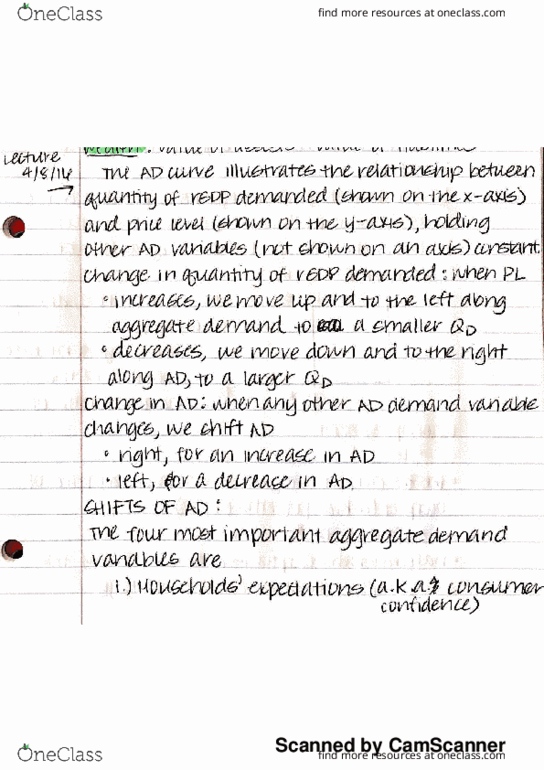 OneClass
find more resources at oneclass.com
wealth: value of assets - value of liabilities
Lecture
4/8/14
→ The AD curve illustrates the relationship between
quantity of rGDP demanded (shown on the x-axis)
and price level (shown on the y-axis), holding
other AD variables (not shown on an axis) constant
change in quantity of rGDP demanded: when PL
• increases, we move up and to the left along
aggregate demand to a smaller QD
• decreases, we move down and to the right
along AD, to a larger QD
change in AD: when any other AD demand variable
changes, we shift AD
• right, for an increase in AD
• left, for a decrease in AD.
SHIFTS OF AD:
The four most important aggregate demand
variables are
i.) Households' expectations (a.k.a. consumer
confidence)
Scanned by CamScanner
OneClass
find more resources at oneclass.com